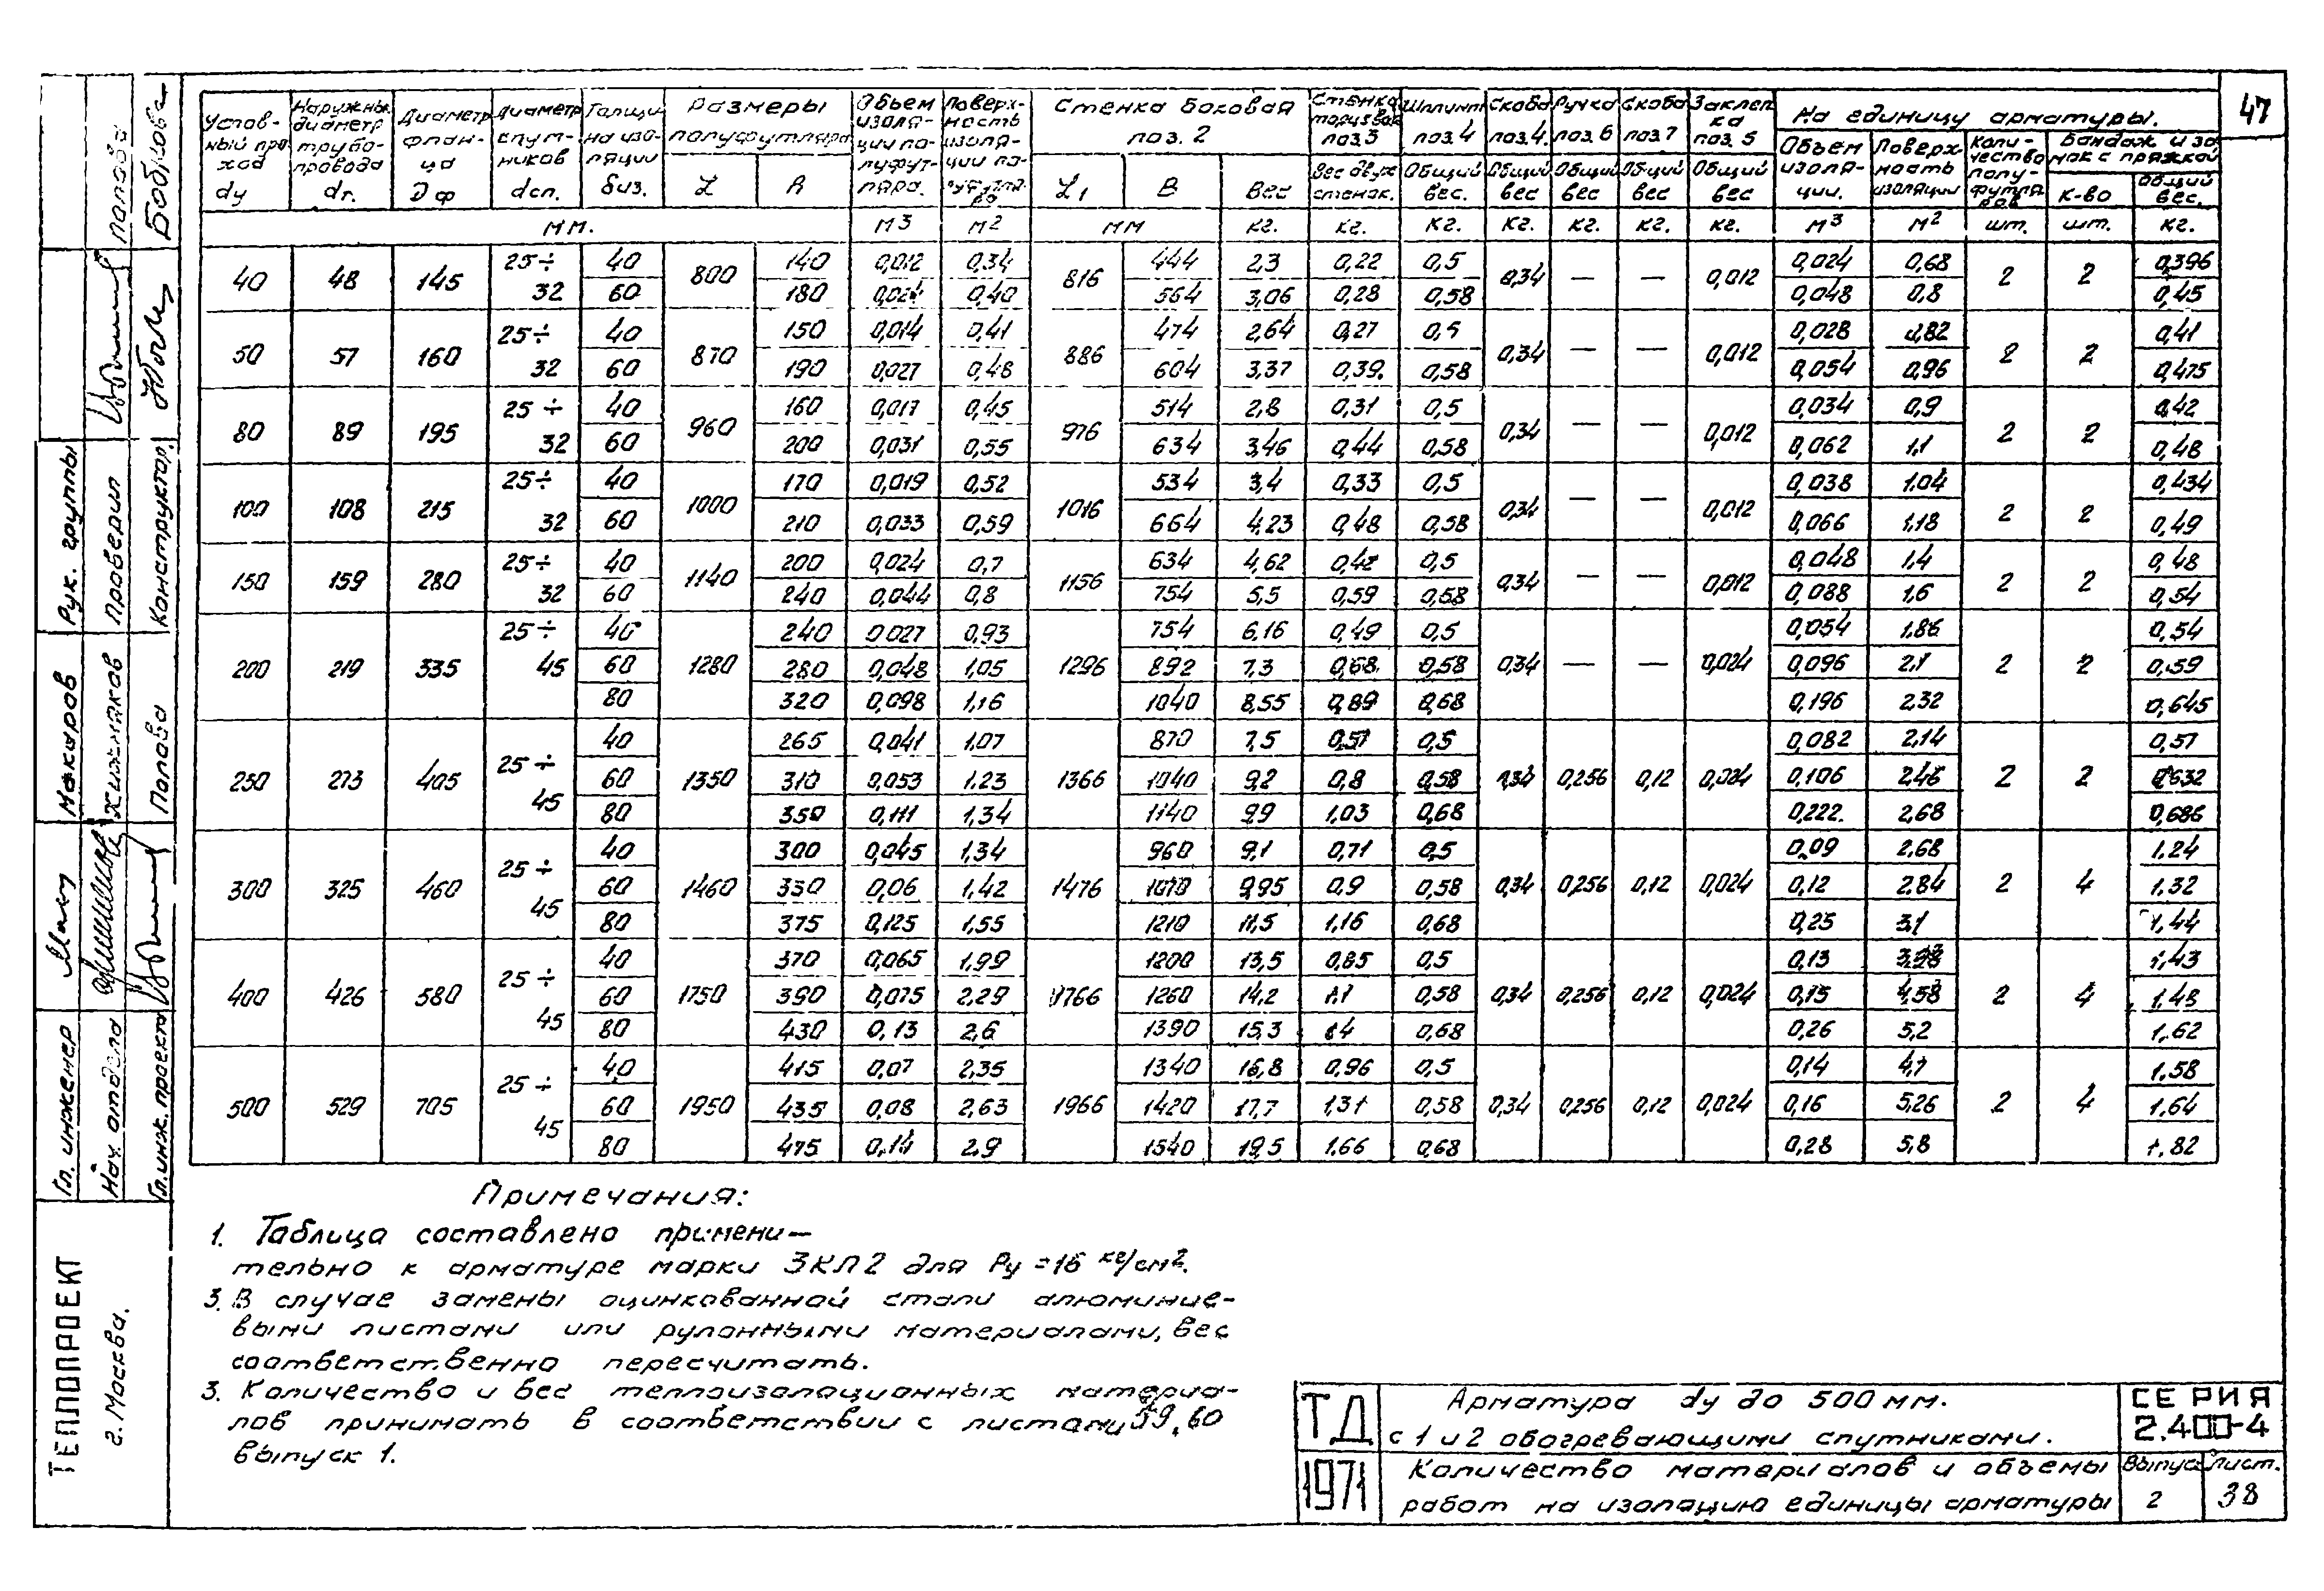 47
Услов-ный проход dу | Наружный диаметр трубо-провода dт. | Диаметр флан-ца Дф | Диаметр спут-ников dсп. | Толщина изо-ляции δиз. | Размеры полуфутляра L | А | Объем изоля-ции по-луфут-ляра. | Поверх-ность изоля-ции по-луфутля-ра | Стенка боковая поз. 2 L1 | В | Вес | Стенка торцевая поз.3 Вес двух стенок. | Шплинт поз.4 Общий вес. | Скоба поз.4. Общий вес | Ручка поз.6 Общий вес | Скоба поз.7 Общий вес | Заклепка поз.5 Общий вес | На единицу арматуры. Объем изоля-ции. | Поверх-ность изоляции | Коли-чество полу-футля-ров | Бандаж и замок с пряжкой к-во | Общий вес.
мм. | м3 | м2 | мм | кг. | кг. | кг. | кг. | кг. | кг. | кг. | м3 | м2 | шт. | шт. | кг.
40 48 145 25÷32 40 800 140 0,012 0,34 816 444 2,3 0,22 0,5 0,34 — — 0,012 0,024 0,68 2 2 0,396
60 180 0,024 0,40 564 3,06 0,28 0,58 0,048 0,8 0,45
50 57 160 25÷32 40 870 150 0,014 0,41 886 474 2,64 0,27 0,5 0,34 — — 0,012 0,028 0,82 2 2 0,41
60 190 0,027 0,48 604 3,37 0,39. 0,58 0,054 0,96 0,475
80 89 195 25÷32 40 960 160 0,017 0,45 976 514 2,8 0,31 0,5 0,34 — — 0,012 0,034 0,9 2 2 0,42
60 200 0,031 0,55 634 3,46 0,44 0,58 0,062 1,1 0,48
100 108 215 25÷32 40 1000 170 0,019 0,52 1016 534 3,4 0,33 0,5 0,34 — — 0,012 0,038 1.04 2 2 0,434
60 210 0,033 0,59 664 4,23 0,48 0,58 0,066 1,18 0,49
150 159 280 25÷32 40 1140 200 0,024 0,7 1156 634 4,62 0,42 0,5 0,34 — — 0,012 0,048 1,4 2 2 0,48
60 240 0,044 0,8 754 5,5 0,59 0,58 0,088 1,6 0,54
200 219 335 25÷45 40 1280 240 0,027 0,93 1296 754 6,16 0,49 0,5 0,34 — — 0,024 0,054 1,86 2 2 0,54
60 280 0,048 1,05 892 7,3 0,68 0,58 0,096 2,1 0,59
80 320 0,098 1,16 1040 8,55 0,89 0,68 0,196 2,32 0,645
250 273 405 25÷45 40 1350 265 0,041 1,07 1366 870 7,5 0,57 0,5 0,34 0,256 0,12 0,024 0,082 2,14 2 2 0,57
60 310 0,053 1,23 1040 9,2 0,8 0,58 0,106 2,46 0,632
80 350 0,111 1,34 1140 9,9 1,03 0,68 0,222. 2,68 0,686
300 325 460 25÷45 40 1460 300 0,045 1,34 1476 960 9,1 0,71 0,5 0,34 0,256 0,12 0,024 0,09 2,68 2 4 1,24
60 330 0,06 1,42 1070 9,95 0,9 0,58 0,12 2,84 1,32
80 375 0,125 1,55 1210 11,5 1,16 0,68 0,25 3,1 1,44
400 426 580 25÷45 40 1750 370 0,065 1,99 1766 1200 13,5 0,85 0,5 0,34 0,256 0,12 0,024 0,13 3,98 2 4 1,43
60 390 0,075 2,29 1260 14,2 1,1 0,58 0,15 4,58 1,48
80 430 0,13 2,6 1390 15,3 1,4 0,68 0,26 5,2 1,62
500 529 705 25÷45 40 1950 415 0,07 2,35 1966 1340 16,8 0,96 0,5 0,34 0,256 0,12 0,024 0,14 4,7 2 4 1,58
60 435 0,08 2,63 1420 17,7 1,31 0,58 0,16 5,26 1,64
80 475 0,14 2,9 1540 19,5 1,66 0,68 0,28 5,8 1,82
Примечания:
1. Таблица составлено примени—
тельно к арматуре марки ЗКЛ2 для Ру =16 кг/см².
3. В случае замены оцинкованной стали алюминие-
выми листами или рулонными материалами, вес
соответственно пересчитать.
3. Количество и вес теплоизоляционных материа-
лов принимать в соответствии с листами 59,60
выпуск 1.
ТД
1971
Арматура dу до 500 мм.
с 1 и 2 обогревающими спутниками.
Количество материалов и объемы
работ на изоляцию единицы арматуры
СЕРИЯ
2.400-4
Выпуск Лист.
2 38
ТЕПЛОПРОЕКТ
г. Москва.
Гл. инженер
Нач. отдела
Гл. инж. проекта
Макаров
Хижняков
Попова
Рук. группы
Проверил
Конструктор.
Попова
Бобкова